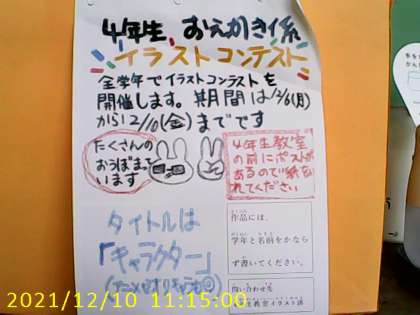 4年生 おえかき係
イラストコンテスト
全学年でイラストコンテストを
開催します。期間は12/6(月)
から12/10(金)までです
たくさんの
おうぼまって
います
4年生教室
の前にポストが
あるので紙を
入れてください
タイトルは
「キャラクター」
作品には、
学年と名前をかなら
ず書いてください。
問い合わせ先
2021/12/10 11:15:00